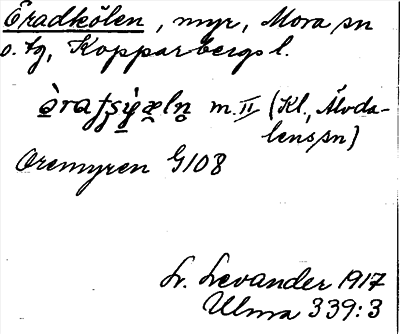 Eradkölen, myr, Mora sn
o. tg, Kopparbergs l.
m. II (Kl., Älvda-
lens sn)
Oremyren G108
L. Levander 1917
Ulma 339:3